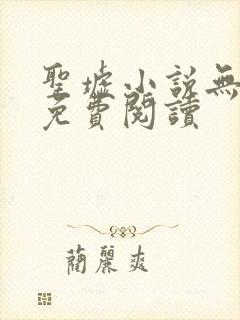 聖墟小說無
免費閱讀
蔺麗爽